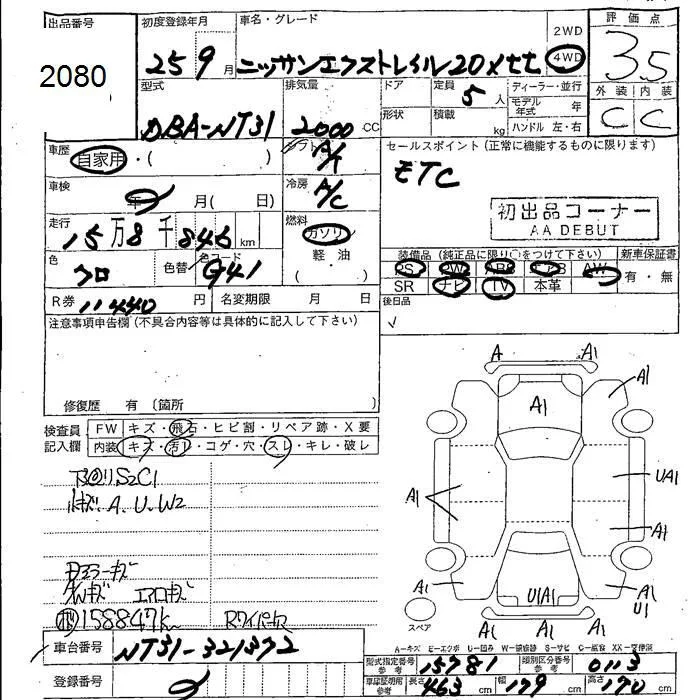 出品番号
初度登録年月
車名・グレード
2WD
評価点
2080
25年9月
ニッサンエクストレイル20Xtt
4WD
3.5
型式
排気量
ドア
定員
5人
ディーラー・並行
モデル年式 年
外装
内装
DBA-NT31
2000 CC
形状
積載
kg
ハンドル 左・右
C
C
車歴
自家用・( )
シフト
A/T
セールスポイント(正常に機能するものに限ります)
ETC
車検
年 月( 日)
冷房
A/C
初出品コーナー
AA DEBUT
走行
15万8千846km
燃料
ガソリン
軽・油
色
クロ
色替
色コード
G41
装備品(純正品に限り○をつけて下さい)
新車保証書
PS
PW
ABS
AW
有・無
SR
ナビ
TV
本革
R券
11440円
名変期限 月 日
後日品
注意事項申告欄(不具合内容等は具体的に記入して下さい)
修復歴 有(箇所
検査員
記入欄
FW
キズ・飛石・ヒビ割・リペア跡・X要
内装
キズ・汚レ・コゲ・穴・スレ・キレ・破レ
S2C1
キズ. A. U. W2
ドアミラーキズ
エアロキズ
158847k
Rワイパー
A
A1
A1
A1
UA1
A1
A1
A1
U1A1
A1
U1
スペア
A1
A1
A1
車台番号
NT31-321372
A-キズ E-エクボ U-凹み W-補修跡 S-サビ C-腐食 XX-交換済
型式指定番号
参考
15781
類別区分番号
参考
0113
登録番号
車庫証明用
参考
長さ
463 cm
幅
179 cm
高さ
170 cm